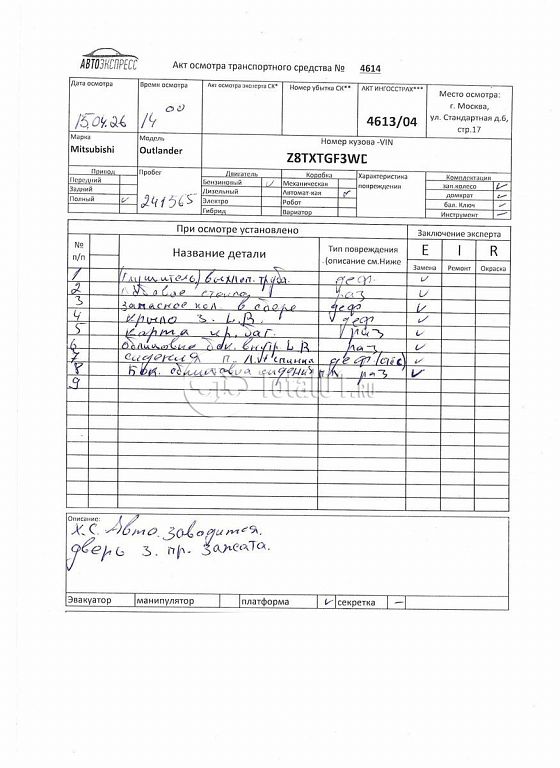 АВТОЭКСПРЕСС
Акт осмотра транспортного средства № 4614
Дата осмотра
15.04.26
Время осмотра
14 00
Акт осмотра эксперта СК*
Номер убытка СК**
АКТ ИНГОССТРАХ***
4613/04
Место осмотра:
г. Москва,
ул. Стандартная д.6,
стр.17
Марка
Mitsubishi
Модель
Outlander
Номер кузова -VIN
Z8TXTGF3WD
Привод
Передний
Задний
Полный
Пробег
241365
Двигатель
Бензиновый
Дизельный
Электро
Гибрид
Коробка
Механическая
Автомат-кая
Робот
Вариатор
Характеристика
повреждения
Комплектация
зап.колесо
домкрат
бал. Ключ
Инструмент
№
п/п
При осмотре установлено
Название детали
Тип повреждения
(описание см.Ниже
Заключение эксперта
E I R
Замена Ремонт Окраска
1 Глушитель) выхлоп. труба. деф.
2 раз
3 Запасное кол. в сборе деф
4 крыло з. L.R. деф
5 карта кр. баг. раз
6 Облицовка бок. внутр. L R раз
7 сидения п. L.R спинка деф
8 Бок. облицовка сидений п. R раз
9
Total01.ru
Описание:
Х.С. Авто. заводится.
дверь з. пр. зажата.
Эвакуатор манипулятор платформа секретка